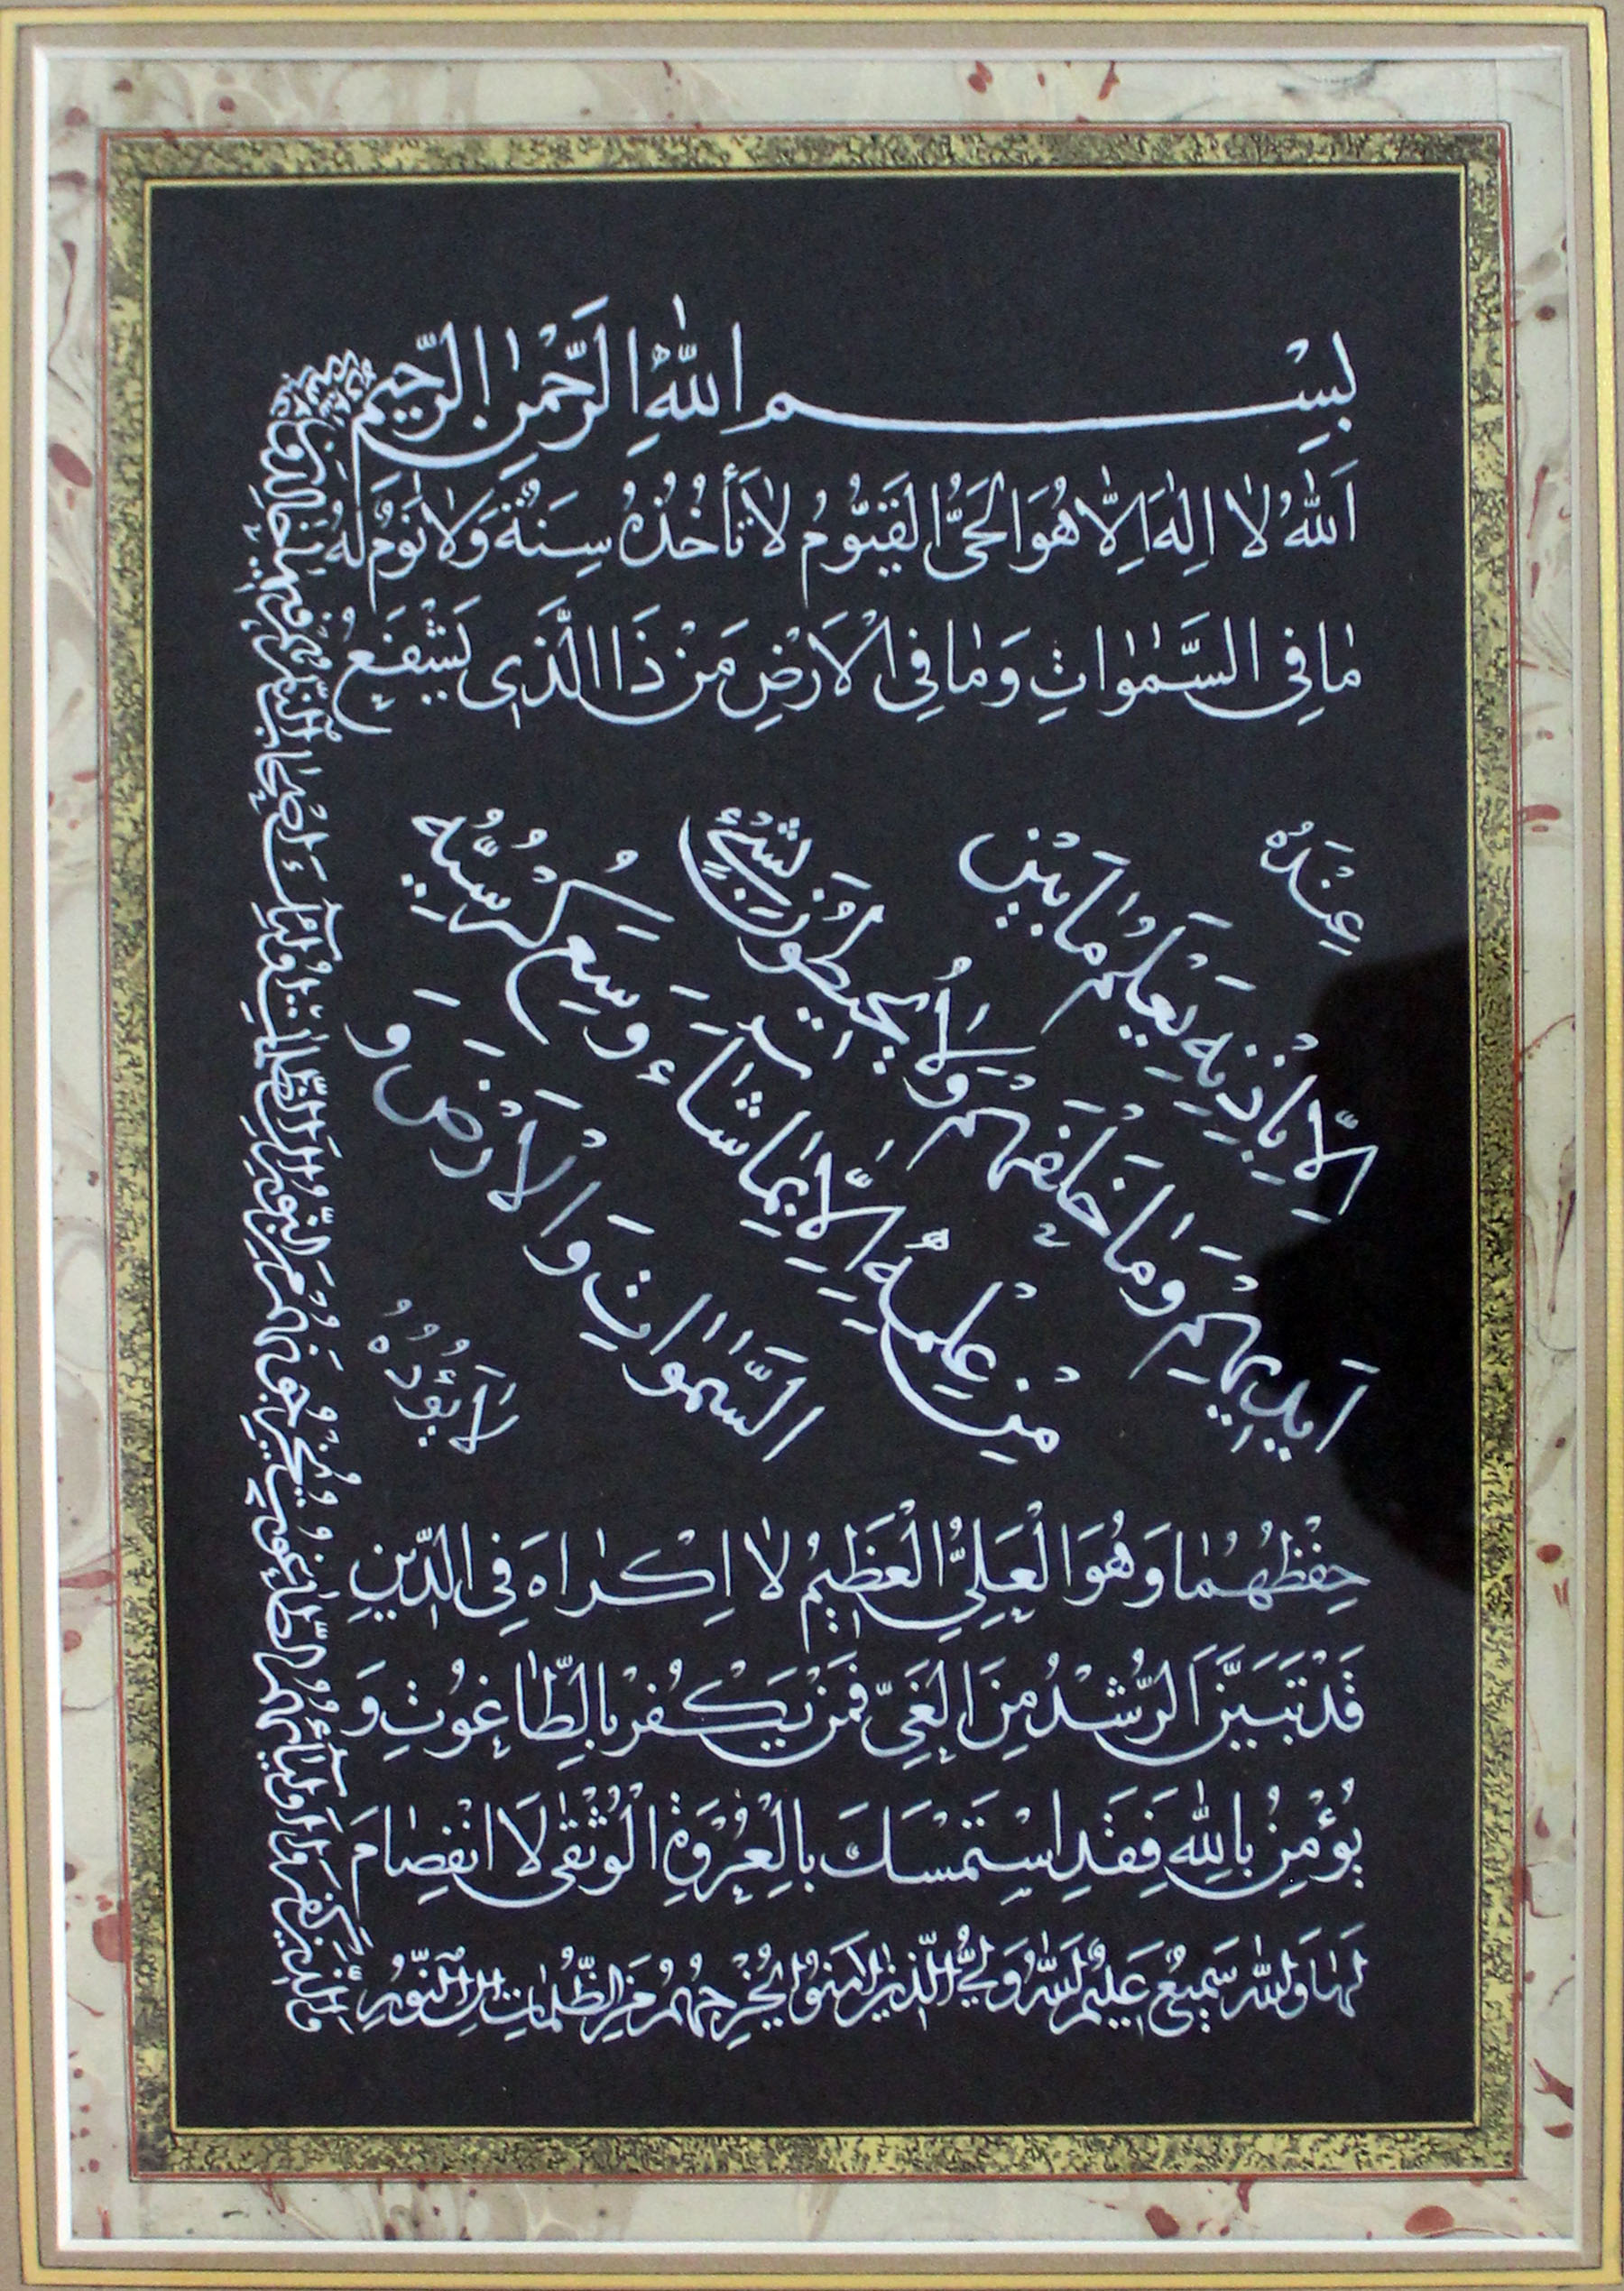 بِسْمِ اللّٰهِ الرَّحْمٰنِ الرَّحِيمِ
اَللّٰهُ لٰا اِلٰهَ اِلّٰا هُوَ الْحَىُّ الْقَيُّومُ لٰا تَأْخُذُهُ سِنَةٌ وَلٰا نَوْمٌ لَهُ
مٰا فِى السَّمٰوٰاتِ وَمٰا فِى الْاَرْضِ مَنْ ذَا الَّذِى يَشْفَعُ
عِنْدَهُ
اِلّٰا بِاِذْنِهِ يَعْلَمُ مٰا بَيْنَ
اَيْدِيهِمْ وَمٰا خَلْفَهُمْ وَلٰا يُحِيطُونَ بِشَىْءٍ
مِنْ عِلْمِهِ اِلّٰا بِمٰا شٰاءَ وَسِعَ كُرْسِيُّهُ
السَّمٰوٰاتِ وَالْاَرْضَ وَ
لَا يَؤُدُهُ
حِفْظُهُمٰا وَهُوَ الْعَلِىُّ الْعَظِيمُ لٰا اِكْرٰاهَ فِى الدِّينِ
قَدْ تَبَيَّنَ الرُّشْدُ مِنَ الْغَىِّ فَمَنْ يَكْفُرْ بِالطّٰاغُوتِ وَ
يُؤْمِنْ بِاللّٰهِ فَقَدِ اسْتَمْسَكَ بِالْعُرْوَةِ الْوُثْقٰى لَا انْفِصٰامَ
لَهٰا وَاللّٰهُ سَمِيعٌ عَلِيمٌ اَللّٰهُ وَلِىُّ الَّذِينَ اٰمَنُوا يُخْرِجُهُمْ مِنَ الظُّلُمٰاتِ اِلَى النُّورِ
وَالَّذِينَ كَفَرُوا اَوْلِيٰاؤُهُمُ الطّٰاغُوتُ يُخْرِجُونَهُمْ مِنَ النُّورِ اِلَى الظُّلُمٰاتِ اُولٰئِكَ اَصْحٰابُ النّٰارِ هُمْ فِيهٰا خٰالِدُونَ